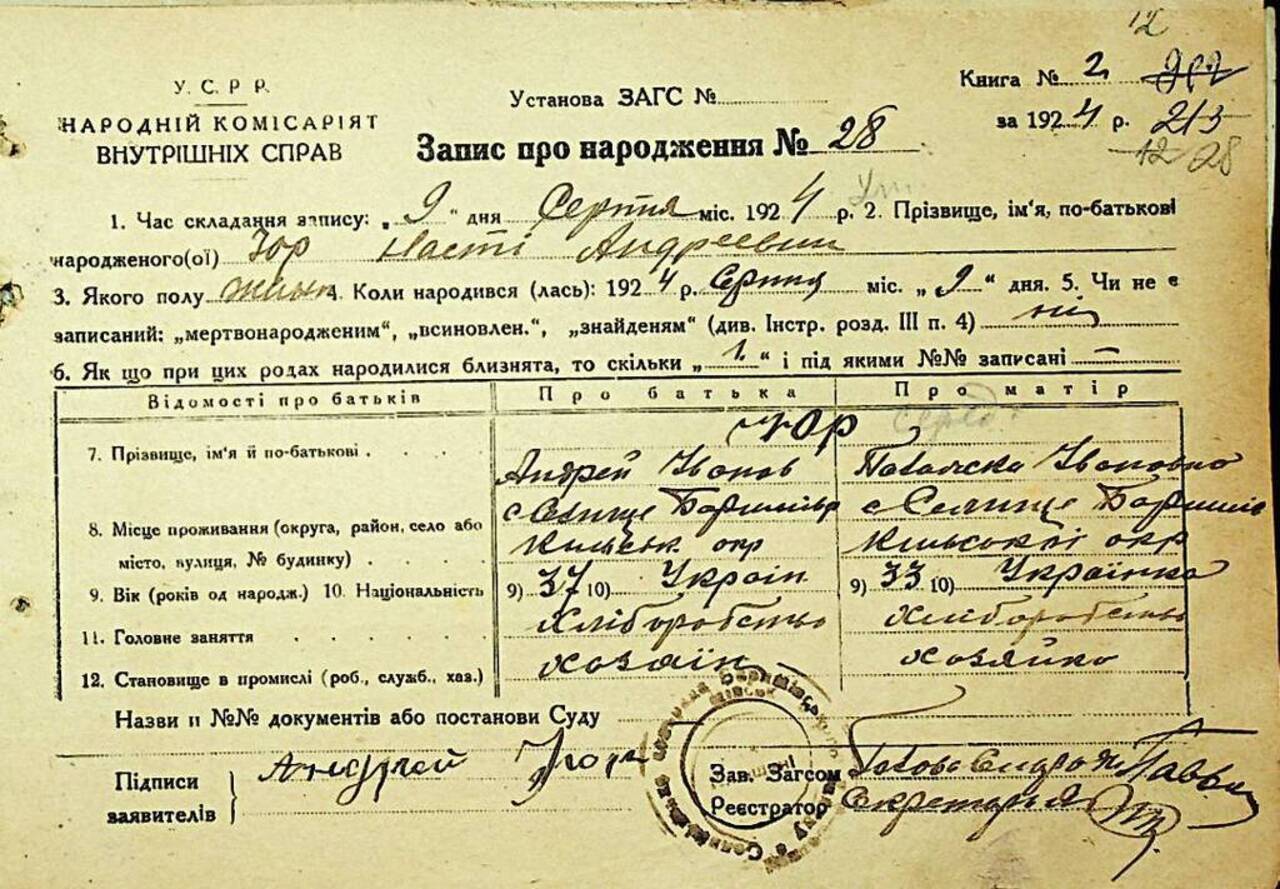 12
У. С. Р Р.
НАРОДНІЙ КОМІСАРІЯТ
ВНУТРІШНІХ СПРАВ
Установа ЗАГС №
Запис про народження № 28
Книга № 2
за 1924 р. 213
12 28
1. Час складання запису: „ 9 “ дня Серпня міс. 1924 р. 2. Прізвище, ім'я, по-батькові
народженого(ої) Насті Андреевни
3. Якого полу жін. 4. Коли народився (лась): 1924 р. Серпня міс. „ 9 “ дня. 5. Чи не є
записаний: „мертвонародженим“, „всиновлен.“, „знайденям“ (див. Інстр. розд. III п. 4) ні
6. Як що при цих родах народилися близнята, то скільки „ 1. “ і під якими №№ записані —
Відомості про батьків Про батька Про матір
7. Прізвище, ім'я й по-батькові
Андрей Іванов Ивановна
8. Місце проживання (округа, район, село або місто, вулиця, № будинку)
с Селище с Селище
Київськ. окр Київської окр
9. Вік (років од народж.) 10. Національність 9) 37 10) Україн 9) 33 10) Українка
11. Головне заняття Хліборобство Хліборобство
12. Становище в промислі (роб., служб., хаз.) хозяїн хозяйка
Назви и №№ документів або постанови Суду
Підписи заявителів Андрей
Зав. Загсом
Реєстратор Секретарь